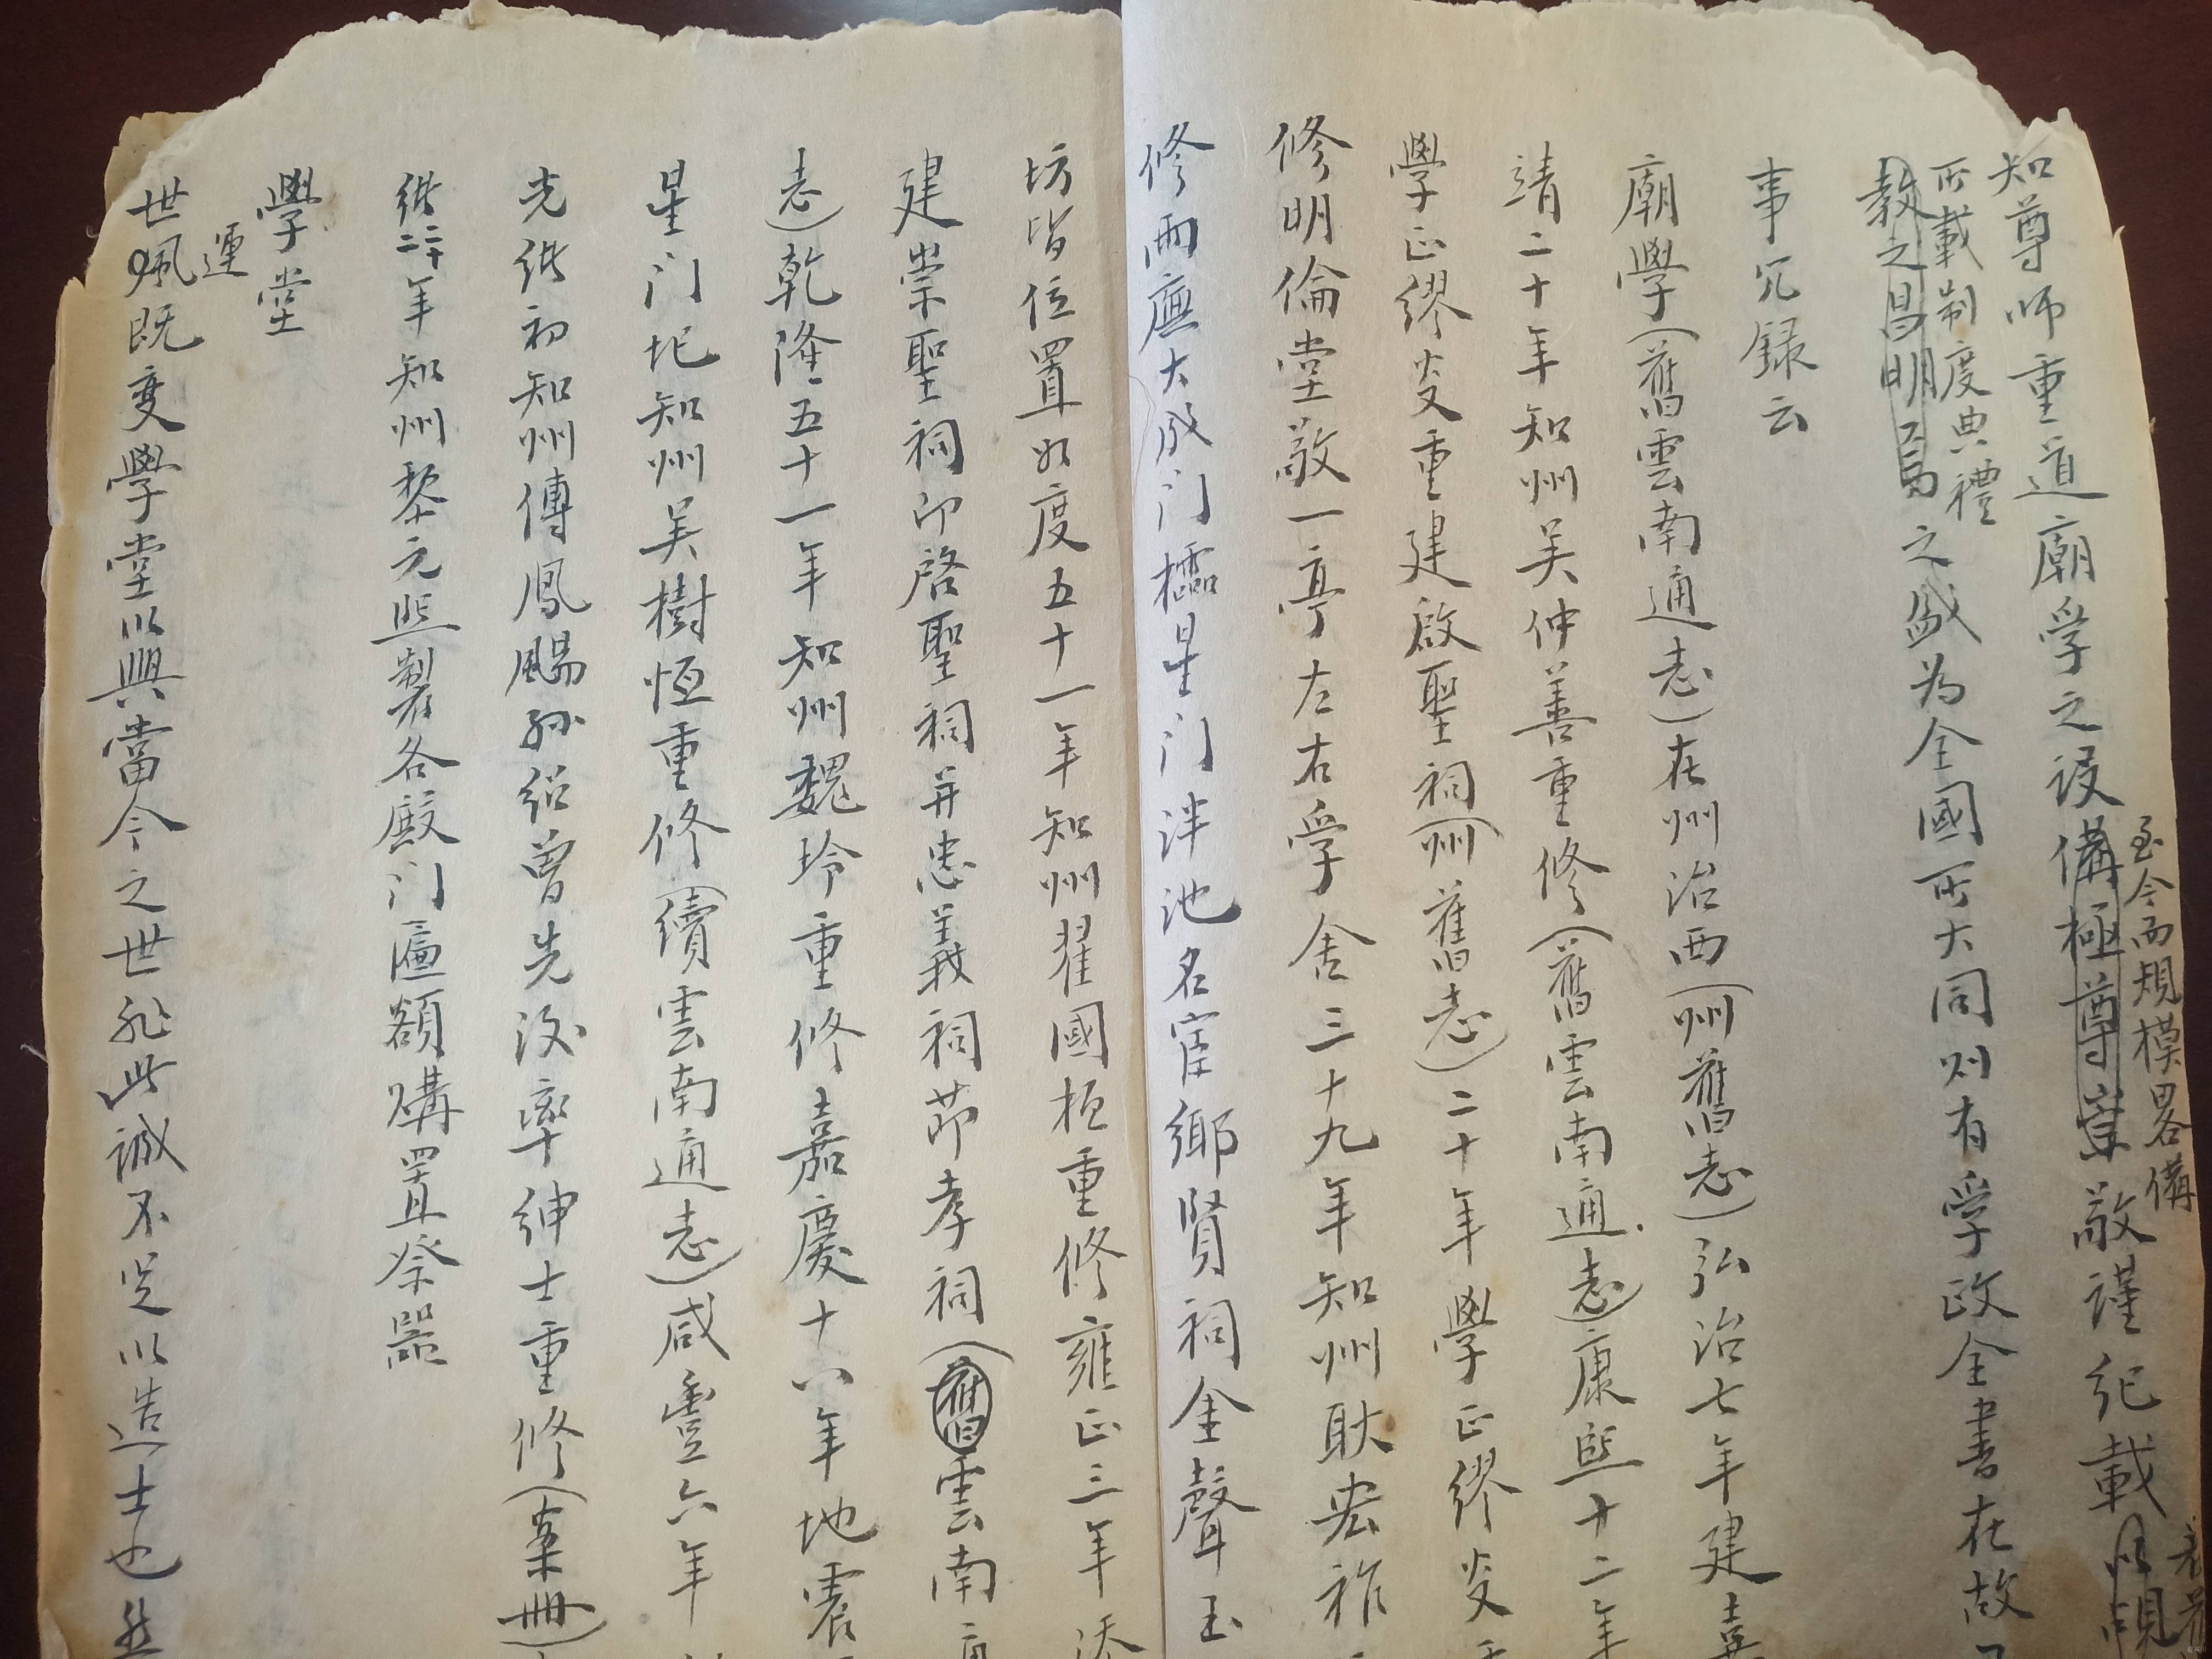 知尊师重道廟学之設備極尊崇敬謹纪載
至今而規模畧備
所載制度典禮
教之昌明為之盛为全國所大同则有学政全書在故
事冗録云
廟學(舊雲南通志)在州治西(州舊志)弘治七年建嘉
靖二十年知州吴仲善重修(舊雲南通志)康熙十二年
學正繆爻重建啟聖祠(州舊志)二十年學正繆爻
修明倫堂敬一亭左右学舍三十九年知州耿宏祚
修两廡大成门櫺星门泮池名宦鄉賢祠金聲玉
坊皆位置如度五十一年知州翟國桓重修雍正三年添
建崇聖祠即啓聖祠并忠義祠节孝祠(舊雲南
志)乾隆五十一年知州魏玲重修嘉慶十八年地震
星门圮知州吴樹恆重修(續雲南通志)咸豊六年
光緒初知州傅鳳颺孙绍曾先後率绅士重修(案册)
緒二十二年知州黎元熙製各殿门匾額購置祭器
學堂
運
世風既变學堂以興當今之世非此誠不足以造士也然